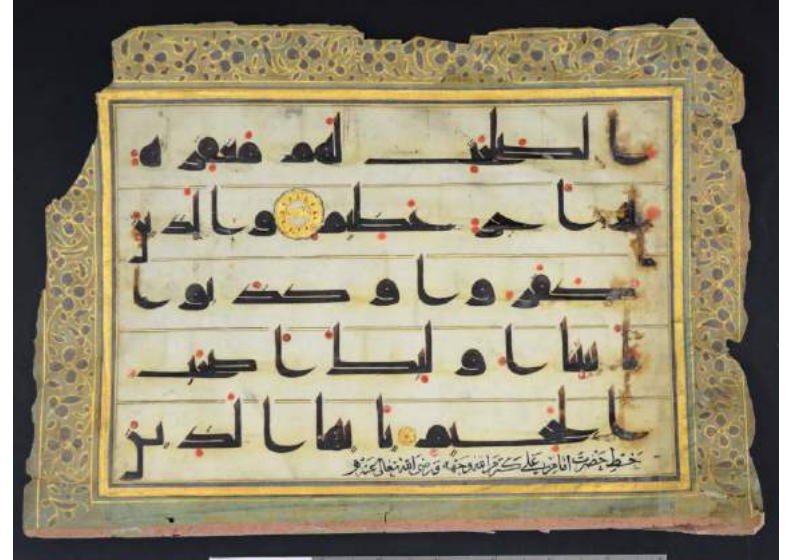 الصلحت لهم مغفرة
واجر عظيم والذين
كفروا وكذبوا
بايتنا اولئك اصحب
الجحيم يايها الذين
خط حضرت امام علي كرم الله وجهه رضى الله تعالى عنه